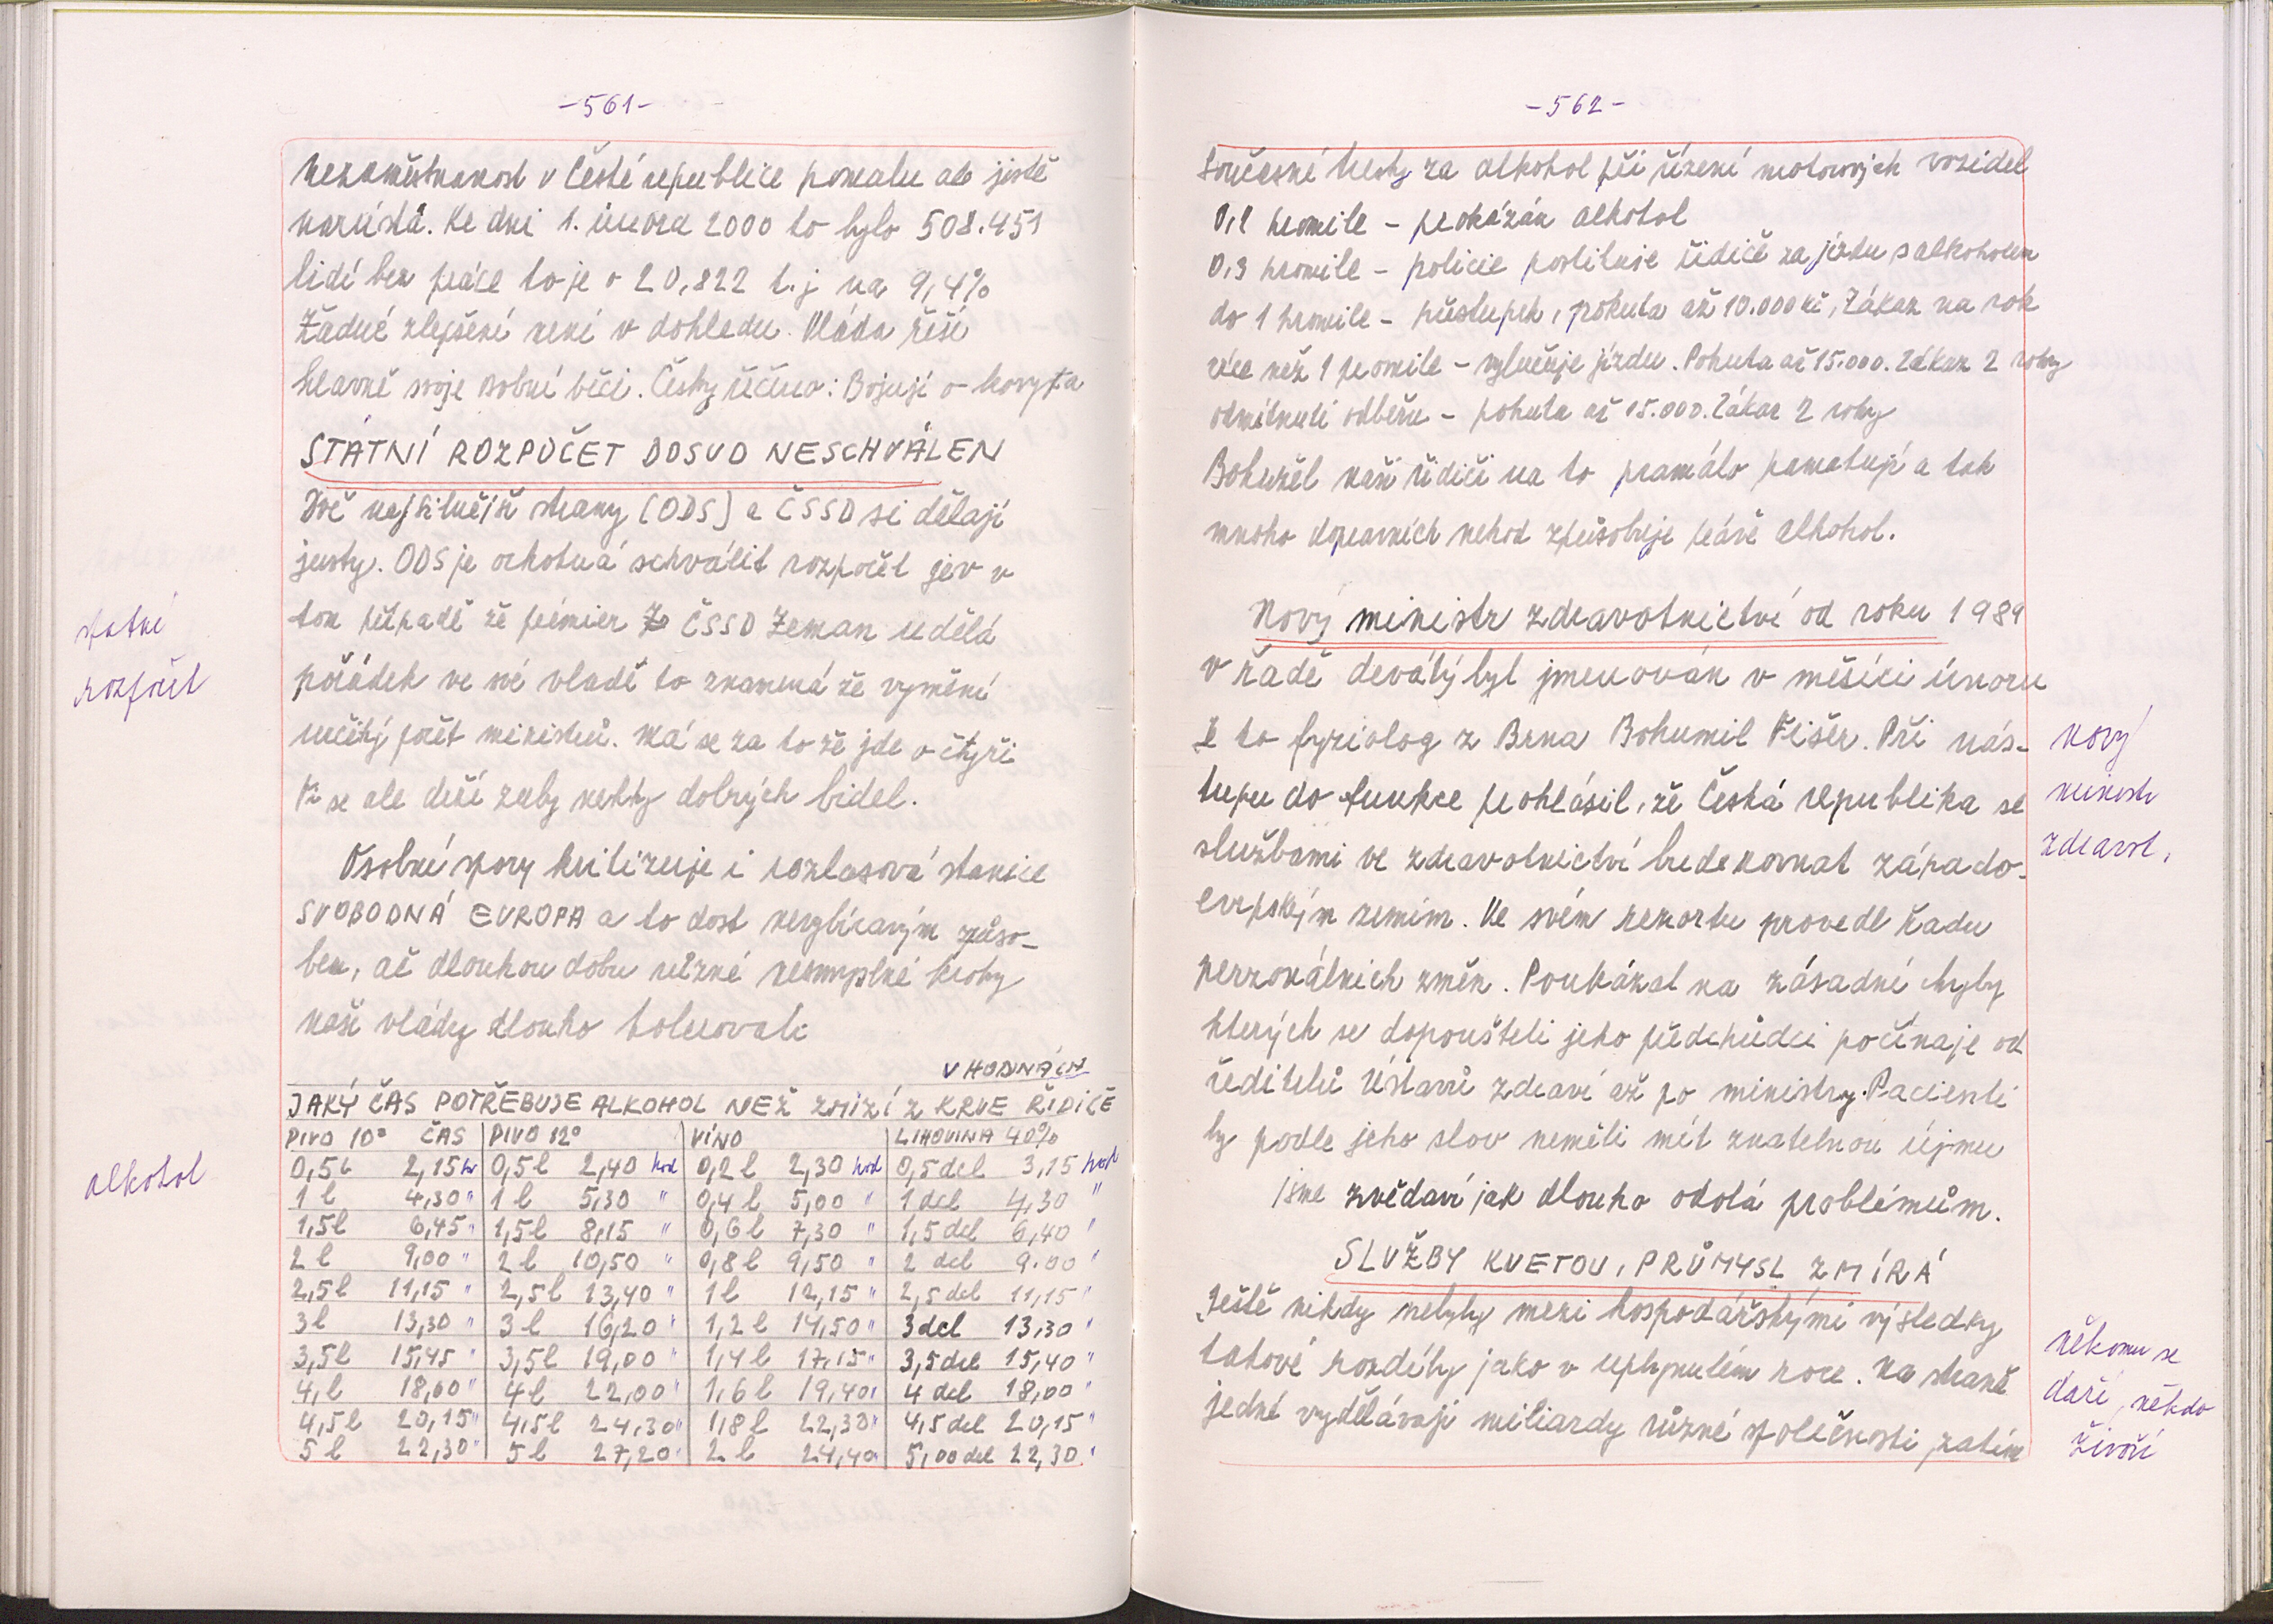 -561-
Nezaměstnanost v České republice pomalu ale jistě
narůstá. Ke dni 1. února 2000 to bylo 508.451
lidí bez práce to je o 20,822 t.j na 9,4%
Žádné zlepšení není v dohledu. Vláda řeší
hlavně svoje osobní věci. Česky řečeno: Bojují o korýta
STÁTNÍ ROZPOČET DOSUD NESCHVÁLEN
Dvě nejsilnější strany (ODS) a ČSSD si dělají
justy. ODS je ochotná schválit rozpočet jen v
tom případě že premier Z ČSSD Zeman udělá
pořádek ve své vládě to znamená že vymění
určitý počet ministrů. Má se za to že jde o čtyři
Ti se ale drží zuby nehty dobrých bidel.
státní
rozpočet
Osobní spory kritizuje i rozlasová stanice
SVOBODNÁ EVROPA a to dost nevybíravým způso-
bem, ač dlouhou dobu různé nesmyslné kroky
naší vlády dlouho tolerovala
V HODINÁCH
JAKÝ ČAS POTŘEBUJE ALKOHOL NEŽ ZMIZÍ Z KRVE ŘIDIČE
PIVO 10° ČAS PIVO 12° VÍNO LIHOVINA 40%
0,5 l 2,15 h 0,5 l 2,40 hod 0,2 l 2,30 hod 0,5 dcl 3,15 hod
1 l 4,30 " 1 l 5,30 " 0,4 l 5,00 " 1 dcl 4,30 "
1,5 l 6,45 " 1,5 l 8,15 " 0,6 l 7,30 " 1,5 dcl 6,40 "
2 l 9,00 " 2 l 10,50 " 0,8 l 9,50 " 2 dcl 9.00 "
2,5 l 11,15 " 2,5 l 13,40 " 1 l 12,15 " 2,5 dcl 11,15 "
3 l 13,30 " 3 l 16,20 " 1,2 l 14,50 " 3 dcl 13,30 "
3,5 l 15,45 " 3,5 l 19,00 " 1,4 l 17,15 " 3,5 dcl 15,40 "
4, l 18,00 " 4 l 22,00 " 1,6 l 19,40 " 4 dcl 18,00 "
4,5 l 20,15 " 4,5 l 24,30 " 1,8 l 22,30 " 4,5 dcl 20,15 "
5 l 22,30 " 5 l 27,20 " 2 l 24,40 5,00 dcl 22,30 "
alkohol
-562-
Současné tresty za alkohol při řízení motorových vozidel
0,2 promile - prokázán alkohol
0,3 promile - policie postihuje řidiče za jízdu s alkoholem
do 1 promile - přestupek, pokuta až 10.000 kč, Zákaz na rok
více než 1 promile - vylučuje jízdu. Pokuta až 15.000. Zákaz 2 roky
odmítnutí odběru - pokuta až 15.000. Zákaz 2 roky
Bohužel naši řidiči na to pramálo pamatují a tak
mnoho dopravních nehod způsobuje právě alkohol.
Nový ministr zdravotnictví od roku 1989
v řadě devátý byl jmenován v měsíci únoru
Je to fyziolog z Brna Bohumil Fišer. Při nás-
tupu do funkce prohlásil, že Česká republika se
službami ve zdravotnictví bude rovnat západo-
evrpským zemím. Ve svém rezortu provedl řadu
perzonálních změn. Poukázal na zásadní chyby
kterých se dopouštěli jeho předchůdci počínaje od
ředitelů Ústavů zdraví až po ministry. Pacienti
by podle jeho slov neměli mít znatelnou újmu
jsme zvědaví jak dlouho odolá problémům.
nový
ministr
zdravot.
SLUŽBY KVETOU, PRŮMYSL ZMÍRÁ
Ještě nikdy nebyly mezi hospodářskými výsledky
takové rozdíly jako v uplynulém roce. Na straně
jedné vydělávají miliardy různé společnosti, zatím
někomu se
daří, někdo
živoří